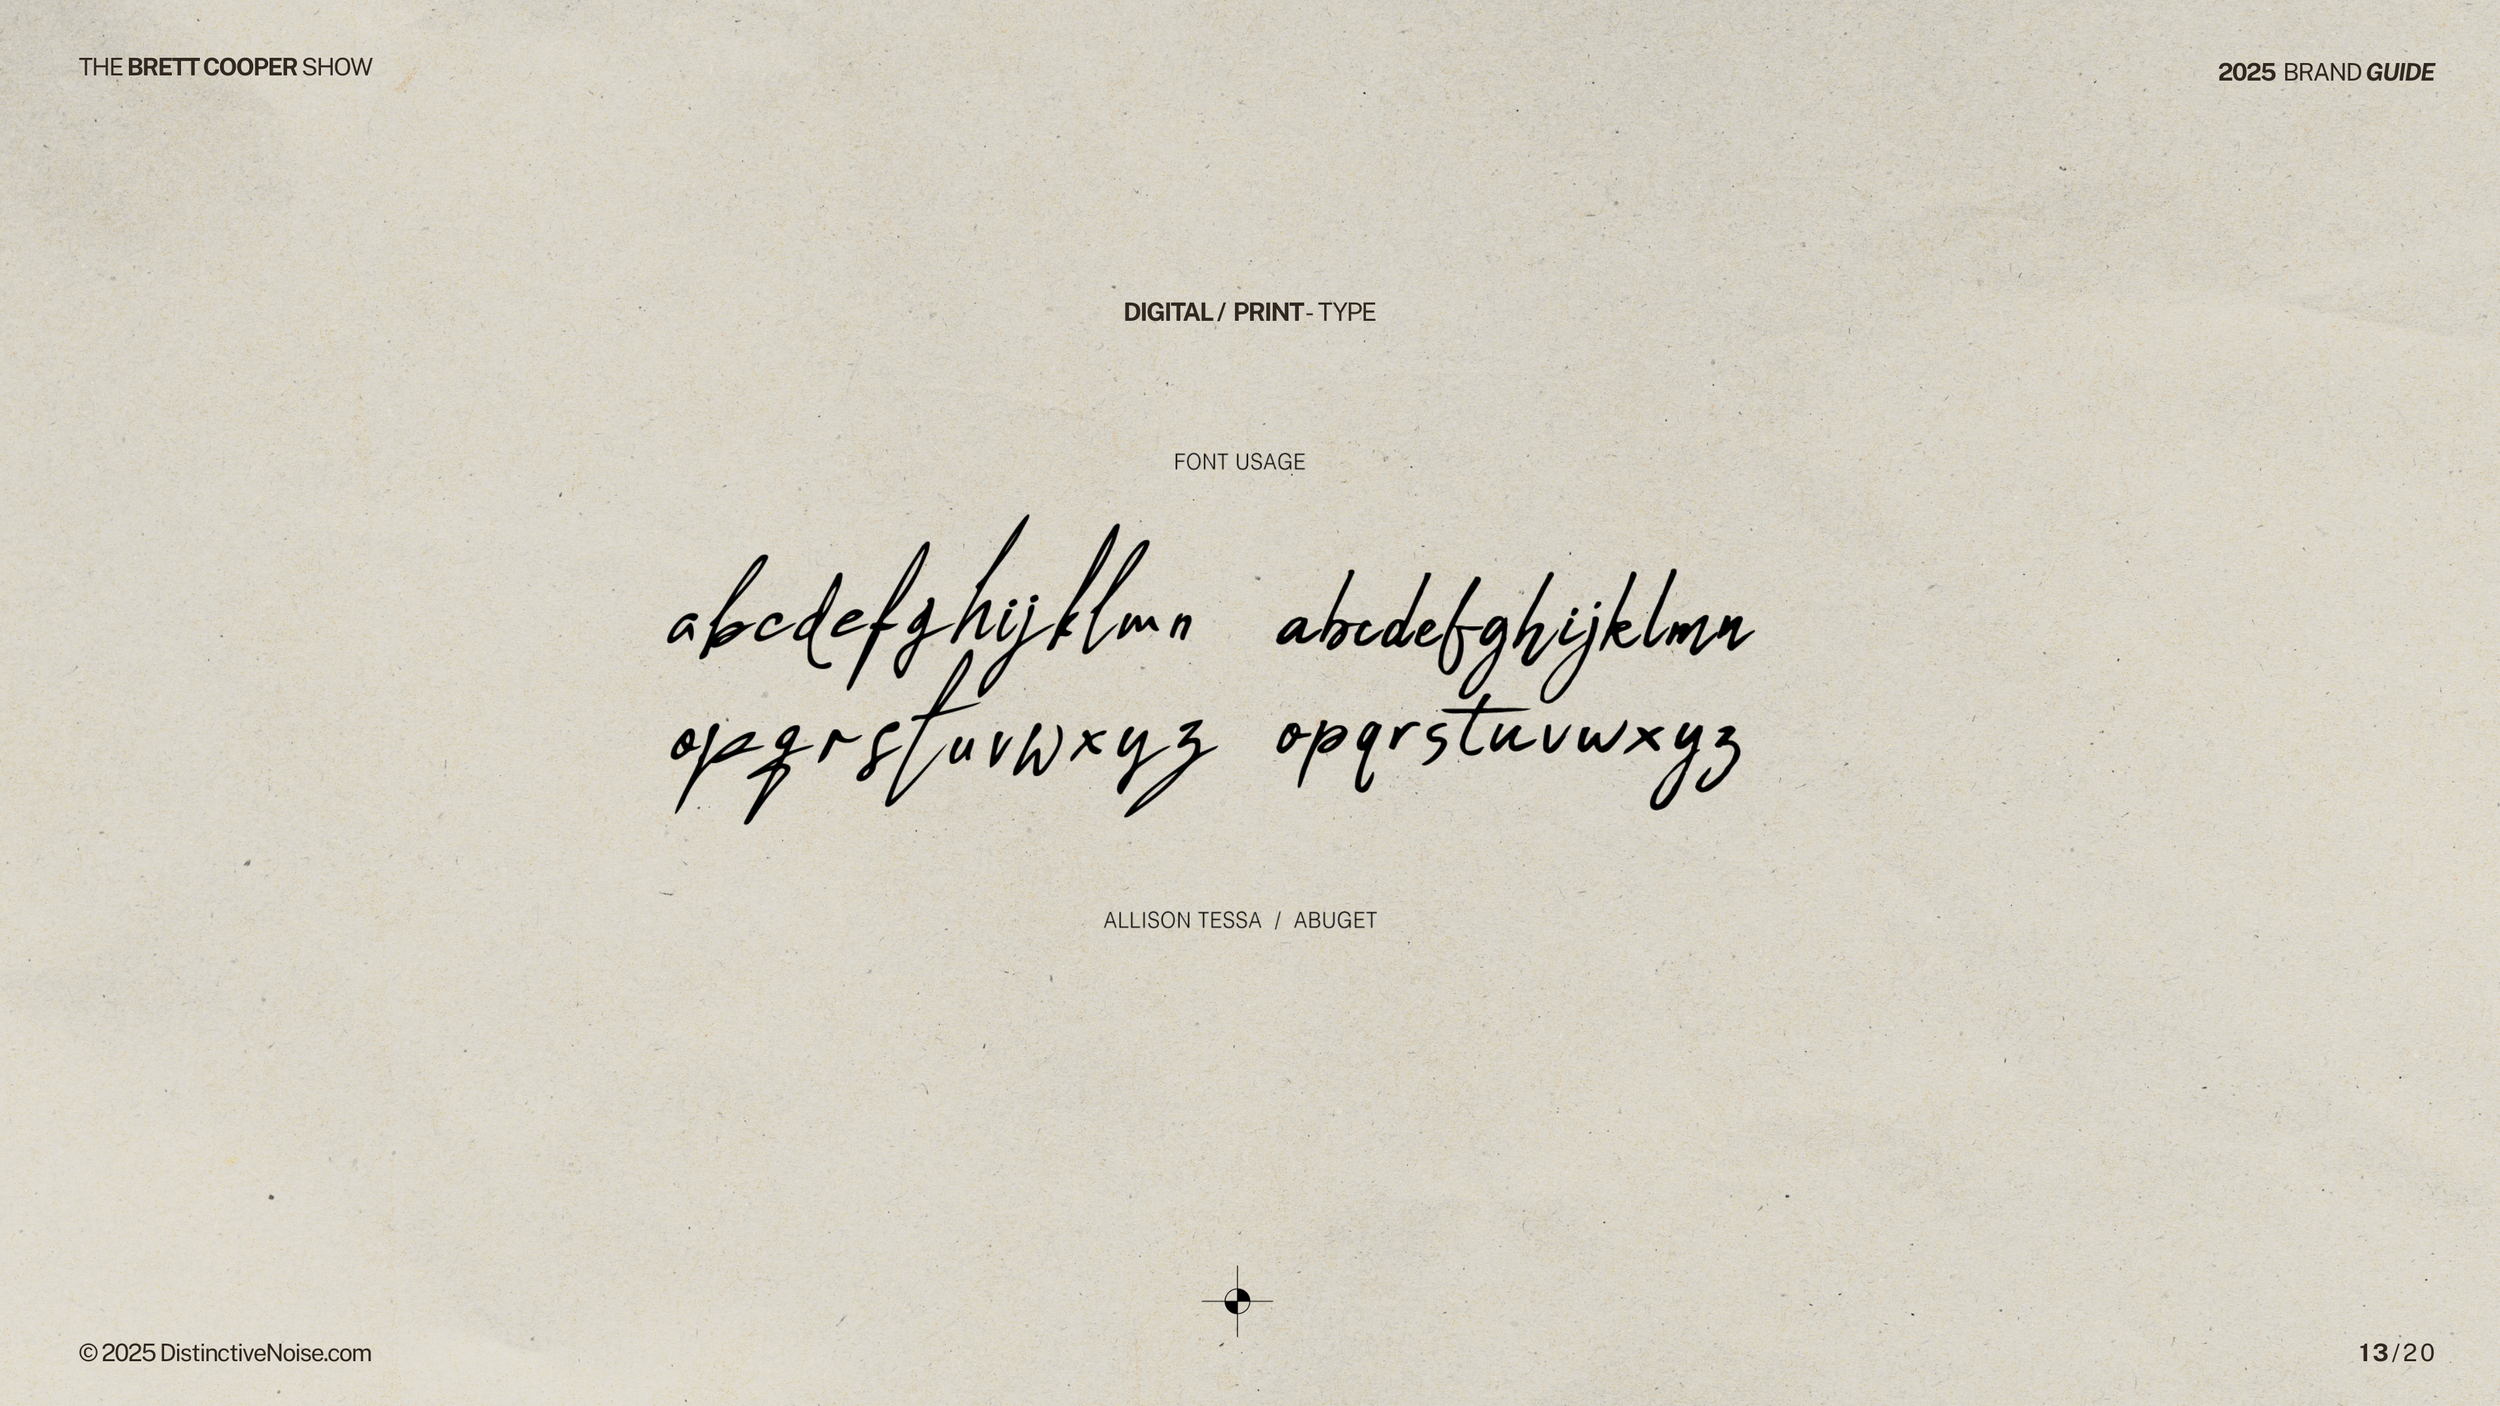 THE BRETT COOPER SHOW
2025 BRAND GUIDE
DIGITAL / PRINT - TYPE
FONT USAGE
abcdefghijklmn abcdefghijklmn
opqrstuvwxyz opqrstuvwxyz
ALLISON TESSA / ABUGET
© 2025 DistinctiveNoise.com
13/20